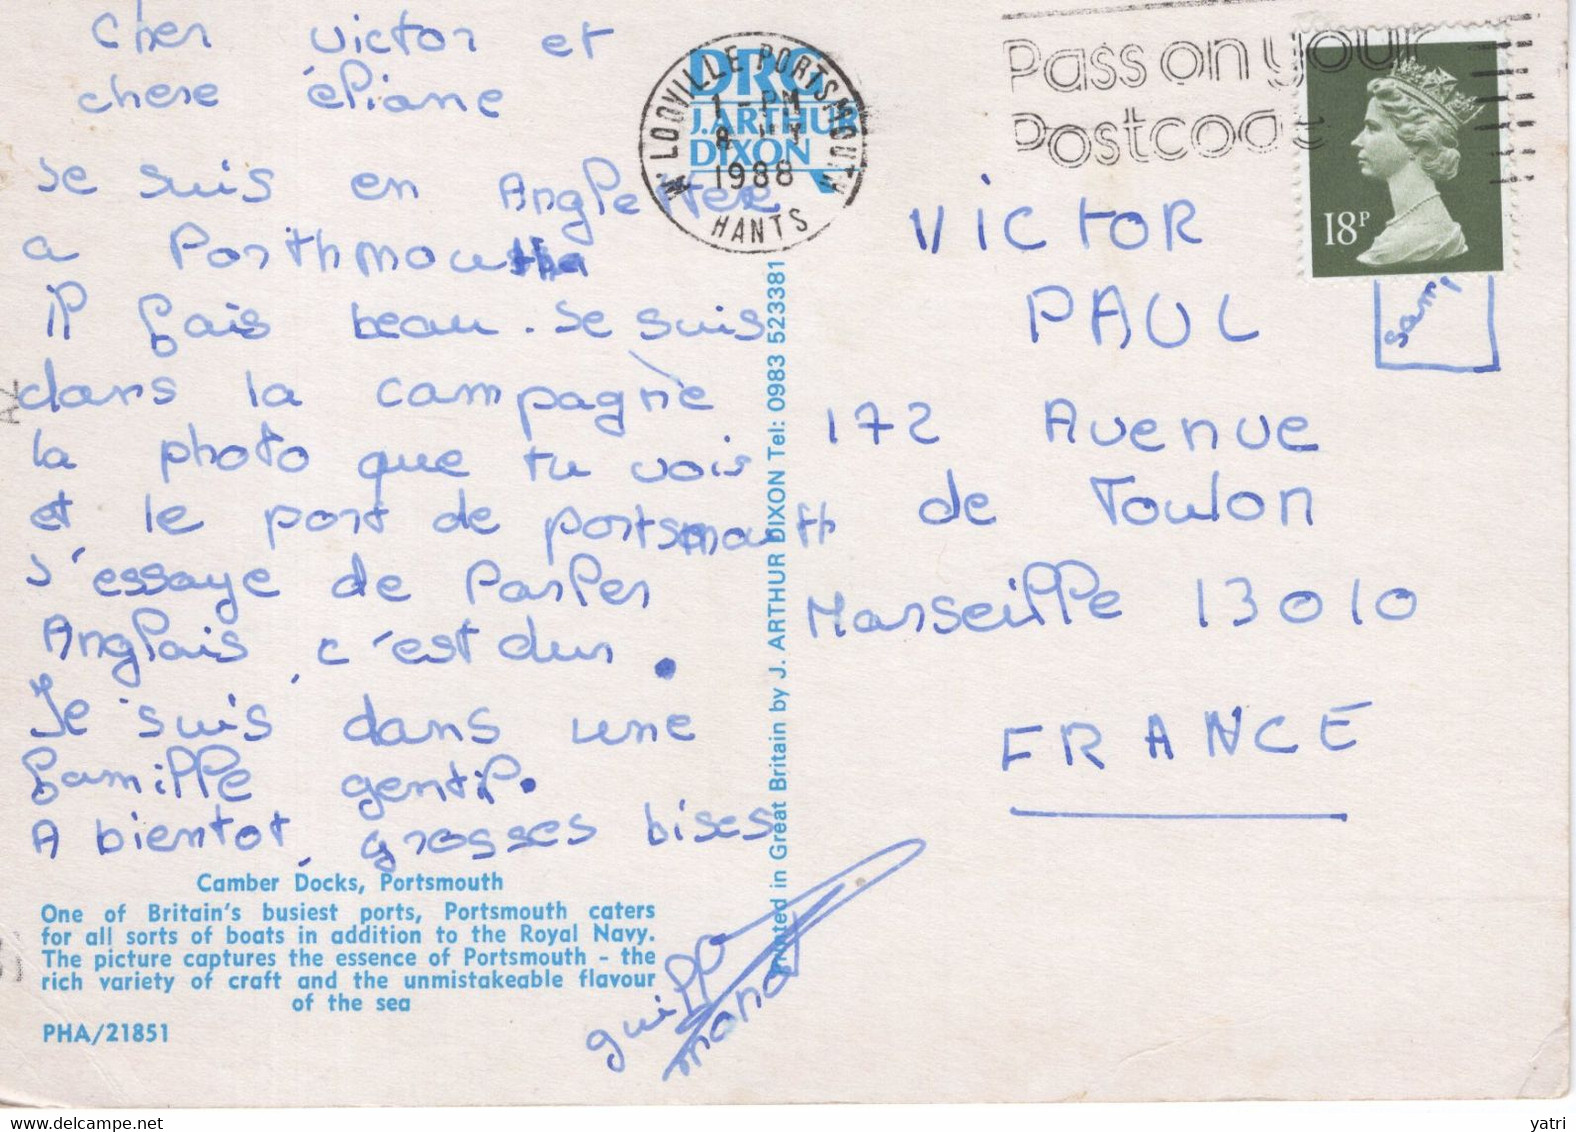 cher victor et
chere éliane
Je suis en Angleterre
a Porthmouth
il fais beau. Je suis
dans la campagne
la photo que tu vois
et le port de portsmouth
J'essaye de Parler
Anglais, c'est dur.
Je suis dans une
famille gentil.
A bientot, grosses bises
Camber Docks, Portsmouth
One of Britain's busiest ports, Portsmouth caters
for all sorts of boats in addition to the Royal Navy.
The picture captures the essence of Portsmouth - the
rich variety of craft and the unmistakeable flavour
of the sea
PHA/21851
DRG
J.ARTHUR
DIXON
Printed in Great Britain by J. ARTHUR DIXON Tel: 0983 523381
W'LOOVILLE PORTSMOUTH
1 - PM
8
1988
HANTS
Pass on your
Postcode
18P
VICTOR
PAUL
172 Avenue
de Toulon
Marseille 13010
FRANCE
yatri